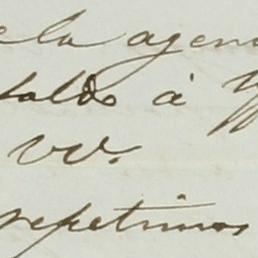 ela agen
saldo á
VV.
repetimos